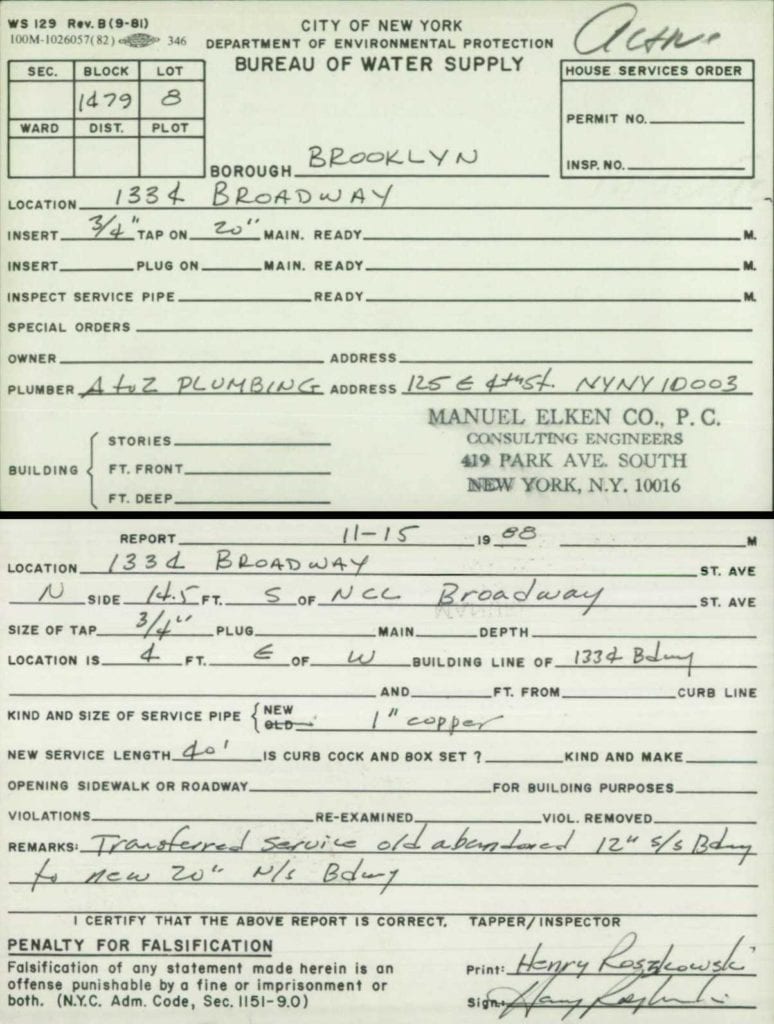 WS 129 Rev. B (9-81)
100M-1026057(82) 346
CITY OF NEW YORK
DEPARTMENT OF ENVIRONMENTAL PROTECTION
BUREAU OF WATER SUPPLY
Active
SEC. BLOCK LOT
1479 8
WARD DIST. PLOT
HOUSE SERVICES ORDER
PERMIT NO.
INSP. NO.
BOROUGH BROOKLYN
LOCATION 1334 BROADWAY
INSERT 3/4" TAP ON 20" MAIN. READY M.
INSERT PLUG ON MAIN. READY M.
INSPECT SERVICE PIPE READY M.
SPECIAL ORDERS
OWNER ADDRESS
PLUMBER A to Z PLUMBING ADDRESS 125 E 4th St. NYNY 10003
MANUEL ELKEN CO., P. C.
CONSULTING ENGINEERS
419 PARK AVE. SOUTH
NEW YORK, N.Y. 10016
BUILDING
STORIES
FT. FRONT
FT. DEEP
REPORT 11-15 19 88 M
LOCATION 1334 BROADWAY ST. AVE
N SIDE 14.5 FT. S OF NCL Broadway ST. AVE
SIZE OF TAP 3/4" PLUG MAIN DEPTH
LOCATION IS 4 FT. E OF W BUILDING LINE OF 1334 Bdwy
AND FT. FROM CURB LINE
KIND AND SIZE OF SERVICE PIPE { NEW OLD 1" copper
NEW SERVICE LENGTH 40' IS CURB COCK AND BOX SET ? KIND AND MAKE
OPENING SIDEWALK OR ROADWAY FOR BUILDING PURPOSES
VIOLATIONS RE-EXAMINED VIOL. REMOVED
REMARKS: Transferred service old abandoned 12" S/S Bdwy
to new 20" N/S Bdwy
I CERTIFY THAT THE ABOVE REPORT IS CORRECT. TAPPER/INSPECTOR
PENALTY FOR FALSIFICATION
Falsification of any statement made herein is an
offense punishable by a fine or imprisonment or
both. (N.Y.C. Adm. Code, Sec. 1151-9.0)
Print: Henry Roszkowski
Sign: Henry Roszkowski